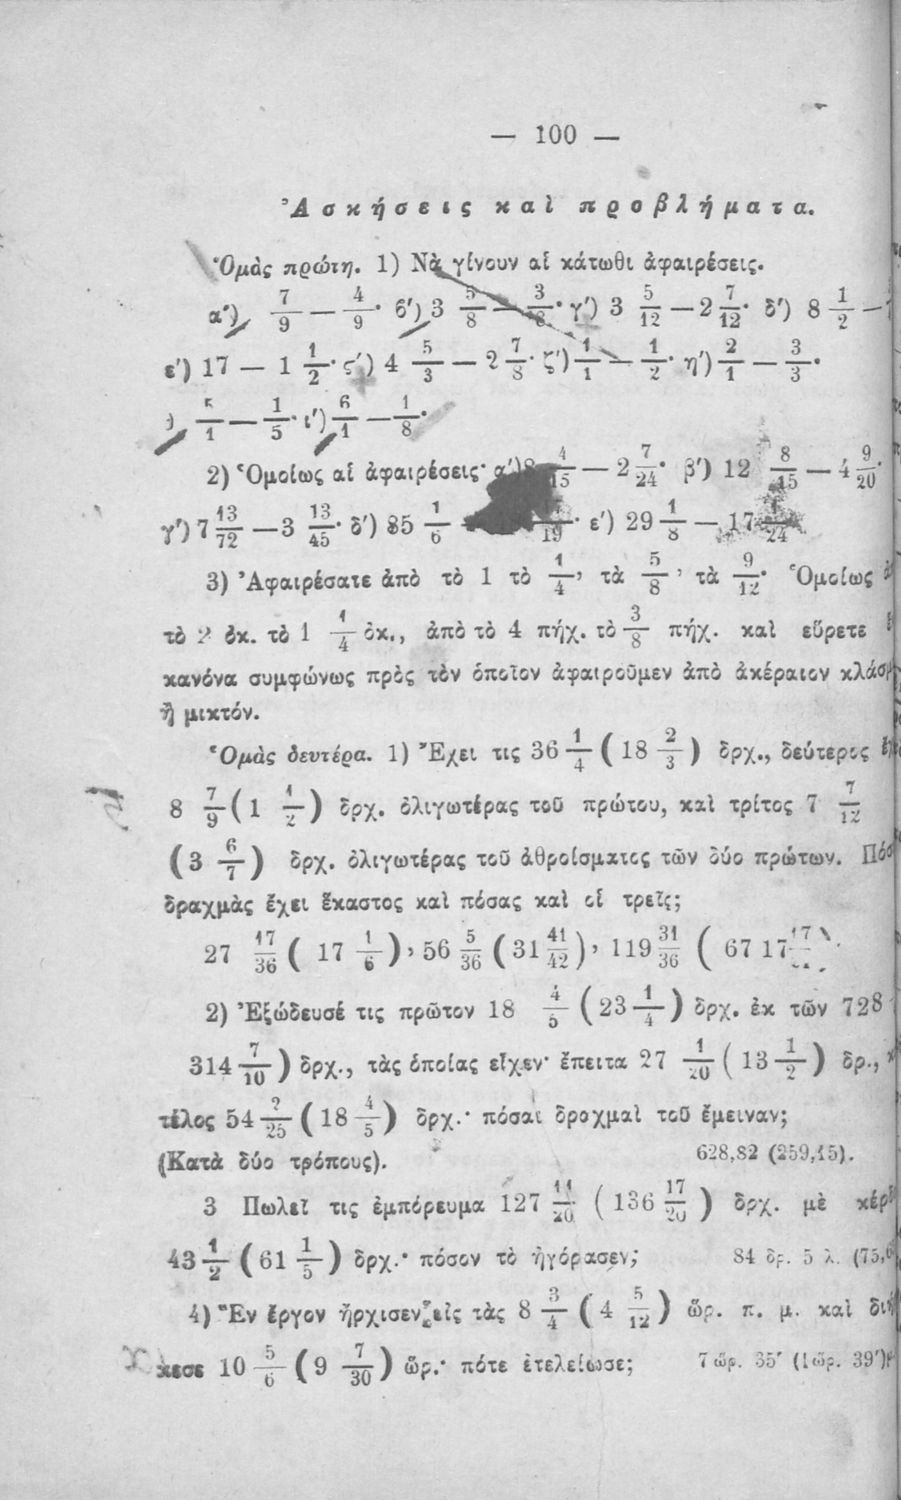 — 100 —
Ἀσκήσεις καὶ προβλήματα.
Ὁμὰς πρώτη. 1) Νὰ γίνουν αἱ κάτωθι ἀφαιρέσεις.
α΄) 7/9 — 4/9· β΄) 3 5/8 — 3/8· γ΄) 3 5/12 — 2 7/12· δ΄) 8 1/2 —
ε΄) 17 — 1 1/2· ς΄) 4 5/3 — 2 7/8· ζ΄) 1/1 — 1/2· η΄) 2/1 — 3/3·
5/1 — 1/5· ι΄) 6/1 — 1/8·
2) Ὁμοίως αἱ ἀφαιρέσεις· α΄) 8 4/15 — 2 7/24· β΄) 12 8/15 — 4 9/20·
γ΄) 7 13/72 — 3 13/45· δ΄) 85 1/6 /19· ε΄) 29 1/8 — 17 /24
3) Ἀφαιρέσατε ἀπὸ τὸ 1 τὸ 1/4, τὰ 5/8, τὰ 9/12. Ὁμοίως
τὸ 2 ὀκ. τὸ 1 1/4 ὀκ., ἀπὸ τὸ 4 πήχ. τὸ 3/8 πήχ. καὶ εὕρετε
κανόνα συμφώνως πρὸς τὸν ὁποῖον ἀφαιροῦμεν ἀπὸ ἀκέραιον κλάσμ
ἢ μικτόν.
Ὁμὰς δευτέρα. 1) Ἔχει τις 36 1/4 (18 2/3) δρχ., δεύτερος
8 7/9 (1 1/2) δρχ. ὀλιγωτέρας τοῦ πρώτου, καὶ τρίτος 7 7/12
(3 6/7) δρχ. ὀλιγωτέρας τοῦ ἀθροίσματος τῶν δύο πρώτων. Πόσ
δραχμὰς ἔχει ἕκαστος καὶ πόσας καὶ οἱ τρεῖς;
27 17/36 (17 1/6), 56 5/36 (31 41/42), 119 31/36 (67 17
2) Ἐξώδευσέ τις πρῶτον 18 4/5 (23 1/4) δρχ. ἐκ τῶν 728
314 7/10) δρχ., τὰς ὁποίας εἶχεν· ἔπειτα 27 1/20 (13 1/2) δρ.,
τέλος 54 2/25 (18 4/5) δρχ.· πόσαι δροχμαὶ τοῦ ἔμειναν;
(Κατὰ δύο τρόπους). 628,82 (259,15).
3 Πωλεῖ τις ἐμπόρευμα 127 11/20 (136 17/20) δρχ. μὲ κέρδ
43 1/2 (61 1/5) δρχ.· πόσον τὸ ἠγόρασεν; 84 δρ. 5 λ. (75,6
4) Ἓν ἔργον ἤρχισεν εἰς τὰς 8 3/4 (4 5/12) ὥρ. π. μ. καὶ διή
κεσε 10 5/6 (9 7/30) ὥρ.· πότε ἐτελείωσε; 7 ὥρ. 35΄ (1 ὥρ. 39΄)